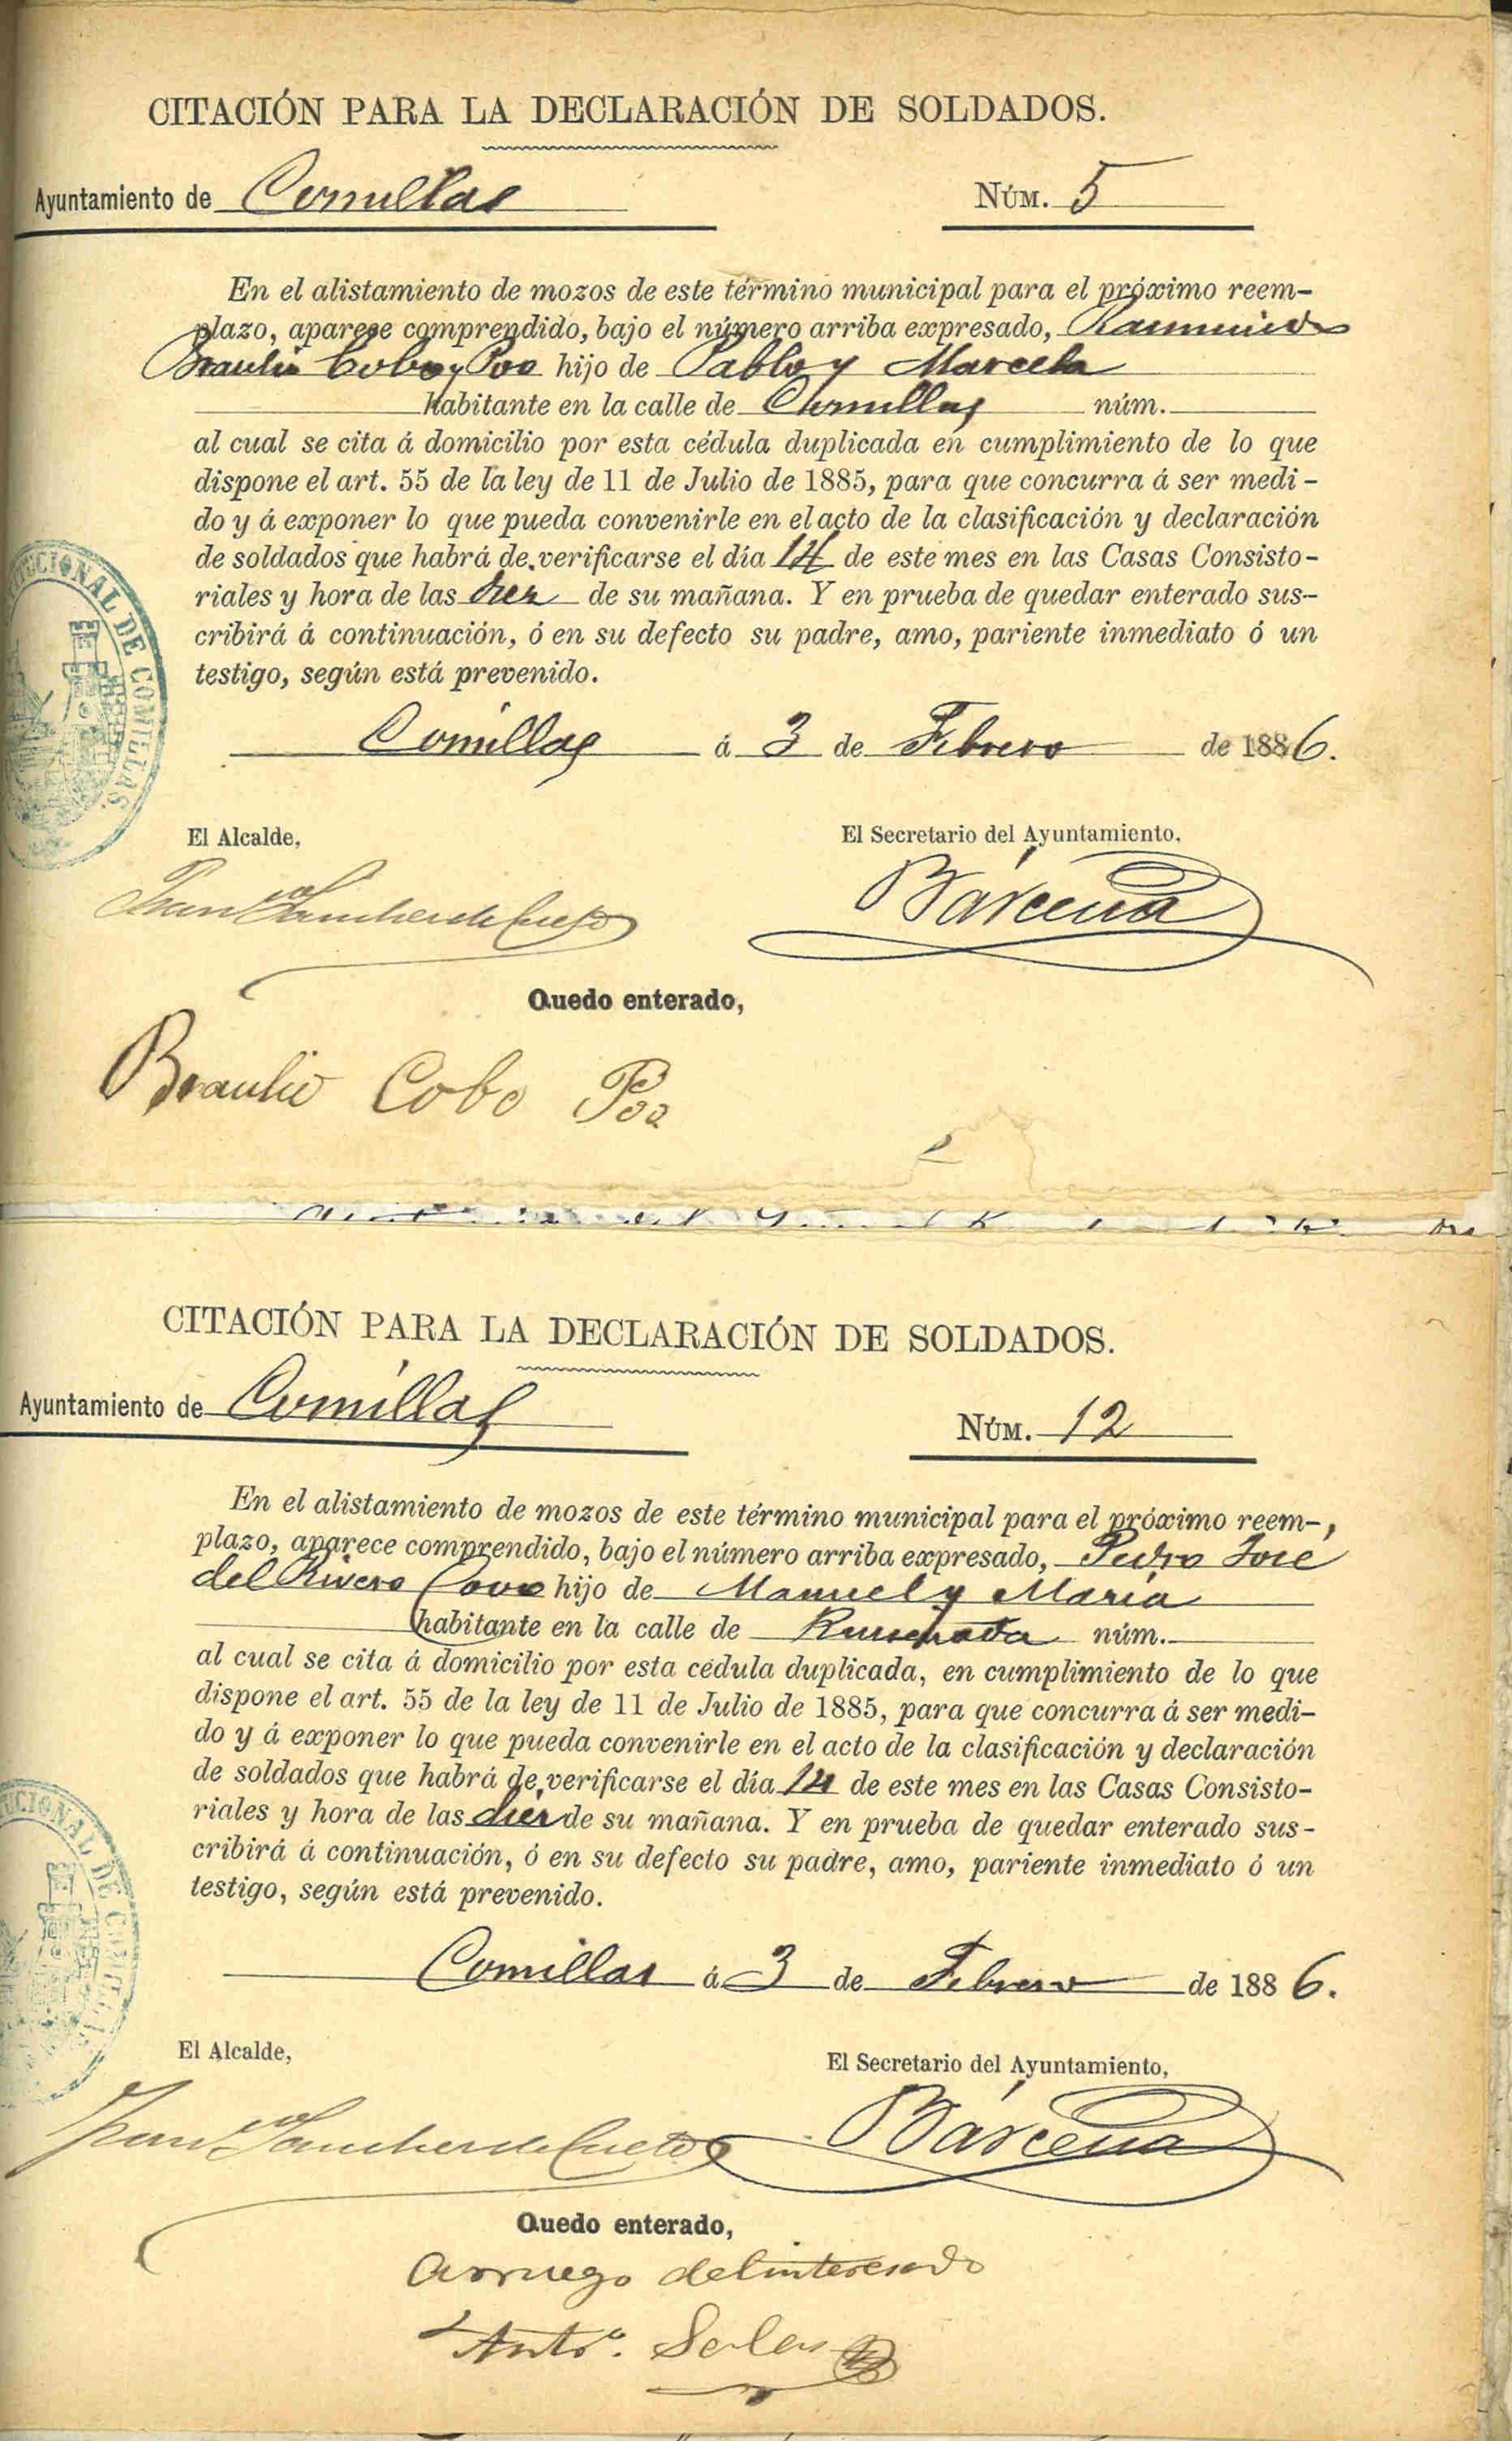 CITACIÓN PARA LA DECLARACIÓN DE SOLDADOS.
Ayuntamiento de Comillas NÚM. 5
En el alistamiento de mozos de este término municipal para el próximo reem-
plazo, aparece comprendido, bajo el número arriba expresado, Raimundo
Braulio Cobo y Poo hijo de Pablo y Marcela
habitante en la calle de Comillas núm.
al cual se cita á domicilio por esta cédula duplicada en cumplimiento de lo que
dispone el art. 55 de la ley de 11 de Julio de 1885, para que concurra á ser medi-
do y á exponer lo que pueda convenirle en el acto de la clasificación y declaración
de soldados que habrá de verificarse el día 14 de este mes en las Casas Consisto-
riales y hora de las diez de su mañana. Y en prueba de quedar enterado sus-
cribirá á continuación, ó en su defecto su padre, amo, pariente inmediato ó un
testigo, según está prevenido.
Comillas á 3 de Febrero de 1886.
El Alcalde, El Secretario del Ayuntamiento,
Juan Sanchez de Cueto Bárcena
Quedo enterado,
Braulio Cobo Poo
CITACIÓN PARA LA DECLARACIÓN DE SOLDADOS.
Ayuntamiento de Comillas NÚM. 12
En el alistamiento de mozos de este término municipal para el próximo reem-
plazo, aparece comprendido, bajo el número arriba expresado, Pedro José
del Rivero Cova hijo de Manuel y María
habitante en la calle de Ruiseñada núm.
al cual se cita á domicilio por esta cédula duplicada, en cumplimiento de lo que
dispone el art. 55 de la ley de 11 de Julio de 1885, para que concurra á ser medi-
do y á exponer lo que pueda convenirle en el acto de la clasificación y declaración
de soldados que habrá de verificarse el día 14 de este mes en las Casas Consisto-
riales y hora de las diez de su mañana. Y en prueba de quedar enterado sus-
cribirá á continuación, ó en su defecto su padre, amo, pariente inmediato ó un
testigo, según está prevenido.
Comillas á 3 de Febrero de 1886.
El Alcalde, El Secretario del Ayuntamiento,
Juan Sanchez de Cueto Bárcena
Quedo enterado,
Arruego del interesado
Antº. Salas